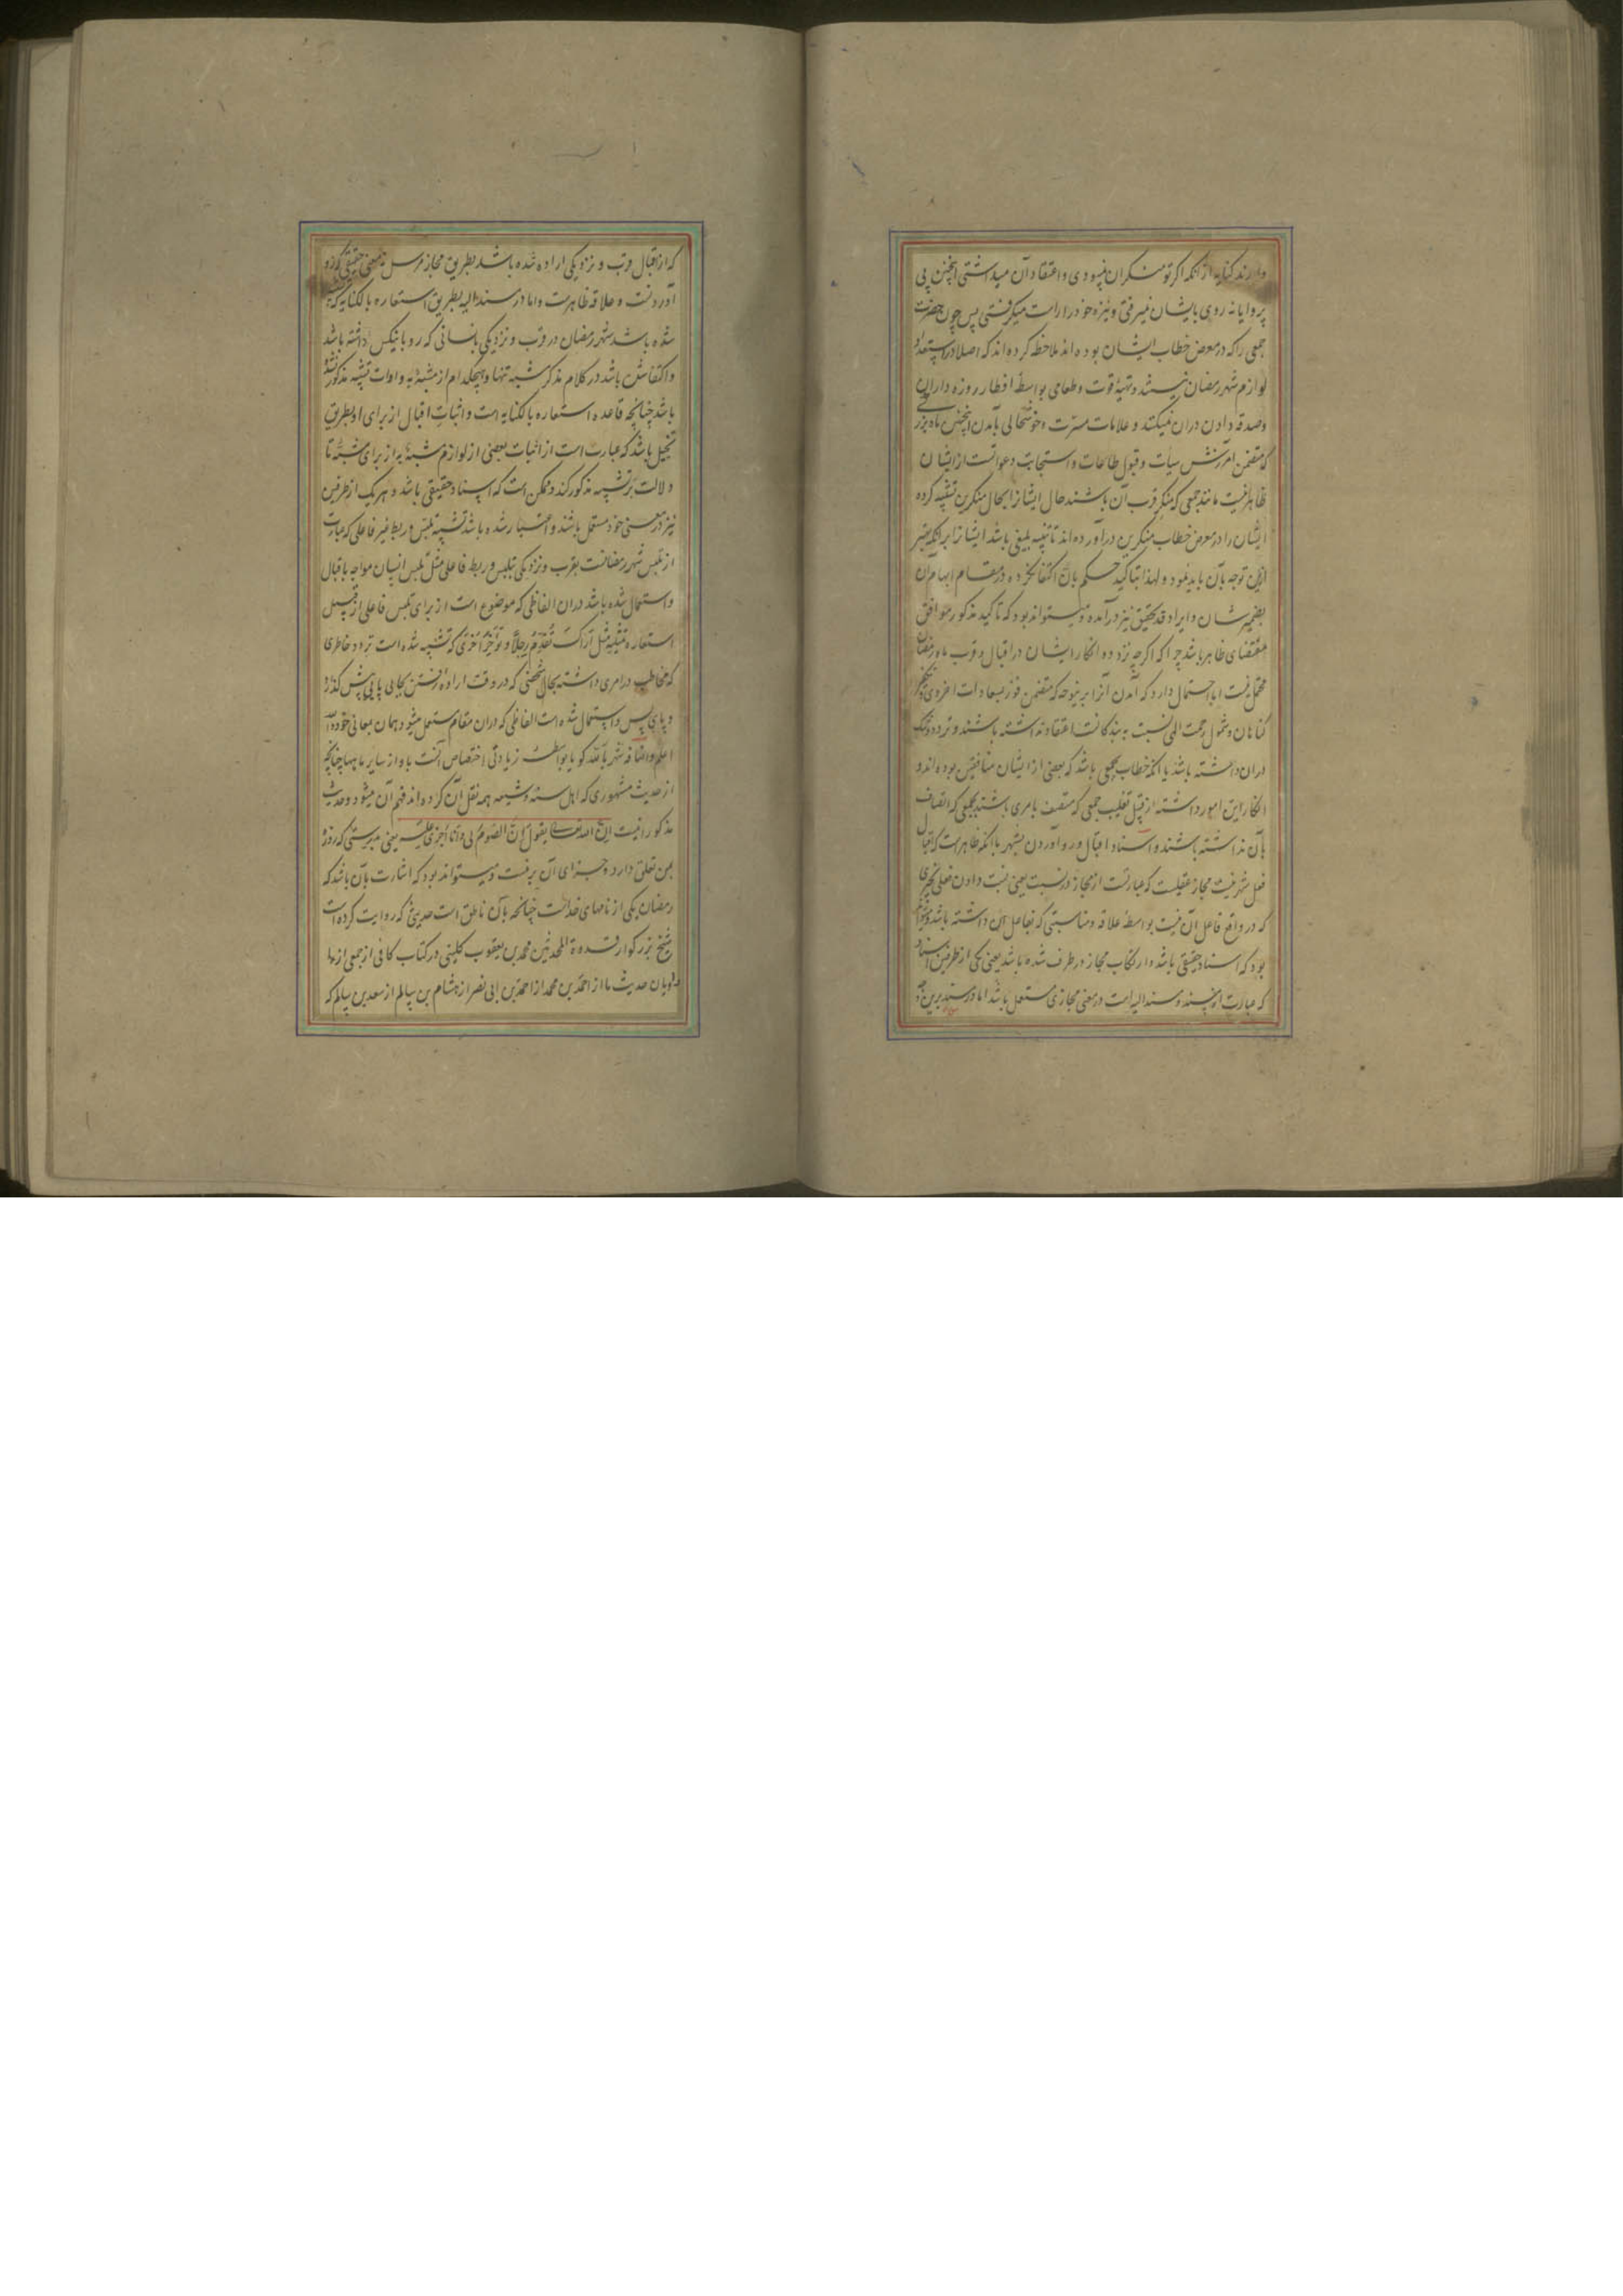 دارند کنایه از آنکه اگر تو منکر ان نمیبودی و اعتقاد آن میداشتی اینچنین بی
پروایانه روی بایشان نمیرفتی و نیزه خود را راست میگرفتی پس چون حضرت
جمعی را که در معرض خطاب ایشان بوده اند ملاحظه کرده اند که اصلا در استعداد
لوازم شهر رمضان نیستند و تهیهٔ قوت و طعامی بواسطهٔ افطار روزه داران
و صدقه دادن دران نمیکنند و علامات مسرت و خوشحالی بآمدن اینچنین ماه بزرگی
که متضمن آمرزش سیآت و قبول طاعات و استجابت دعواتست از ایشان
ظاهر نیست مانند جمعی که منکر قرب آن باشند حال ایشانرا بحال منکرین تشبیه کرده
ایشان را در معرض خطاب منکرین درآورده اند تا تنبیه بلیغی باشد ایشانرا بر آنکه بیش
ازین توجه بآن باید نمود و لهذا بتاکید حکم بانّ اکتفا نکرده در مقام ابهام آن
بضمیر شان و ایراد قد تحقیق نیز درآمده و میتواند بود که تاکید مذکور موافق
مقتضای ظاهر باشد چرا که اگرچه تردد و انکار ایشان در اقبال و قرب ماه رمضان
محتمل نیست اما احتمال دارد که آمدن آنرا براینوجه که متضمن فوز بسعادات اخروی و تکفیر
کناهان و شمول رحمت الهی نسبت به بندکانست اعتقاد نداشته باشند و تردد و شک
دران داشته باشد یا آنکه خطاب بجمعی باشد که بعضی از ایشان منافقین بوده اند و
انکار این امور داشته از قبیل تغلیب جمعی که متصف بامری باشند بجمعی که اتصاف
بآن نداشته باشند و اسناد اقبال و رو آوردن بشهر با آنکه ظاهرست که اقبال
فعل شهر نیست مجاز عقلیست که عبارتست از مجاز در نسبت یعنی نسبت دادن فعلی بچیزی
که در واقع فاعل آن نیست بواسطهٔ علاقه و مناسبتی که بفاعل آن داشته باشد و میتواند
بود که اسناد حقیقی باشد و ارتکاب مجاز در طرف شده باشد یعنی یکی از طرفین اسناد
که عبارت از مسند و مسند الیه است در معنی مجازی مستعمل باشد اما در مسند برین وجه
که از اقبال قرب و نزدیکی اراده شده باشد بطریق مجاز مرسل چه معنی حقیقی که رو
آوردنست و علاقه ظاهرست و اما در مسند الیه بطریق استعاره بالکنایه که تشبیه
شده باشد شهر رمضان در قرب و نزدیکی بانسانی که رو بانیکس داشته باشد
و اکتفا شده باشد در کلام بذکر مشبه تنها و هیچکدام از مشبهٌ به و ادات تشبیه مذکور نشده
باشد چنانچه قاعدهٔ استعاره بالکنایه است و اثبات اقبال از برای او بطریق
تخییل باشد که عبارت است از اثبات بعضی از لوازم مشبهٌ به از برای مشبّه تا
دلالت بر تشبیه مذکور کند و ممکن است که اسناد حقیقی باشد و هر یک از طرفین
نیز در معنی خود مستعمل باشند و اعتبار شده باشد تشبیه تلبس و ربط غیر فاعلی که عبارت
از تلبس شهر رمضانست بقرب و نزدیکی بتلبس و ربط فاعلی مثل تلبس انسان مواجه باقبال
و استعمال شده باشد دران الفاظی که موضوع است از برای تلبس فاعلی از قبیل
استعاره تمثیلیه مثل اَراک تُقدّمُ رِجلاً و تُؤخّرُ اُخری که تشبیه شده است تردد خاطری
که مخاطب در امری داشته بحال شخصی که در وقت ارادهٔ رفتن بجایی پایی پیش کذارد
و پای پس و استعمال شده است الفاظی که دران مقام مستعمل میشود بهمان معانی خود والله
اعلم و اضافه شهر بالله کویا بواسطهٔ زیادتی اختصاص آنست باو از سایر ماهها چنانچه
از حدیث مشهوری که اهل سنه و شیعه همه نقل آن کرده اند فهم آن میشود و حدیث
مذکور اینست اِنّ الله تعالی یقول اِنّ الصّومَ لی و اَنا اَجزی علیه یعنی بدرستی که روزه
بمن تعلق دارد و جزای آن بر منست و میتواند بود که اشارت بآن باشد که
رمضان یکی از نامهای خداست چنانچه بآن ناطق است حدیثی که روایت کرده است
شیخ بزرکوار قدوة المحدثین محمد بن یعقوب کلینی در کتاب کافی از جمعی از
راویان حدیث ما از احمد بن محمد از احمد بن ابی نصر از هشام بن سالم از سعد بن سالم که